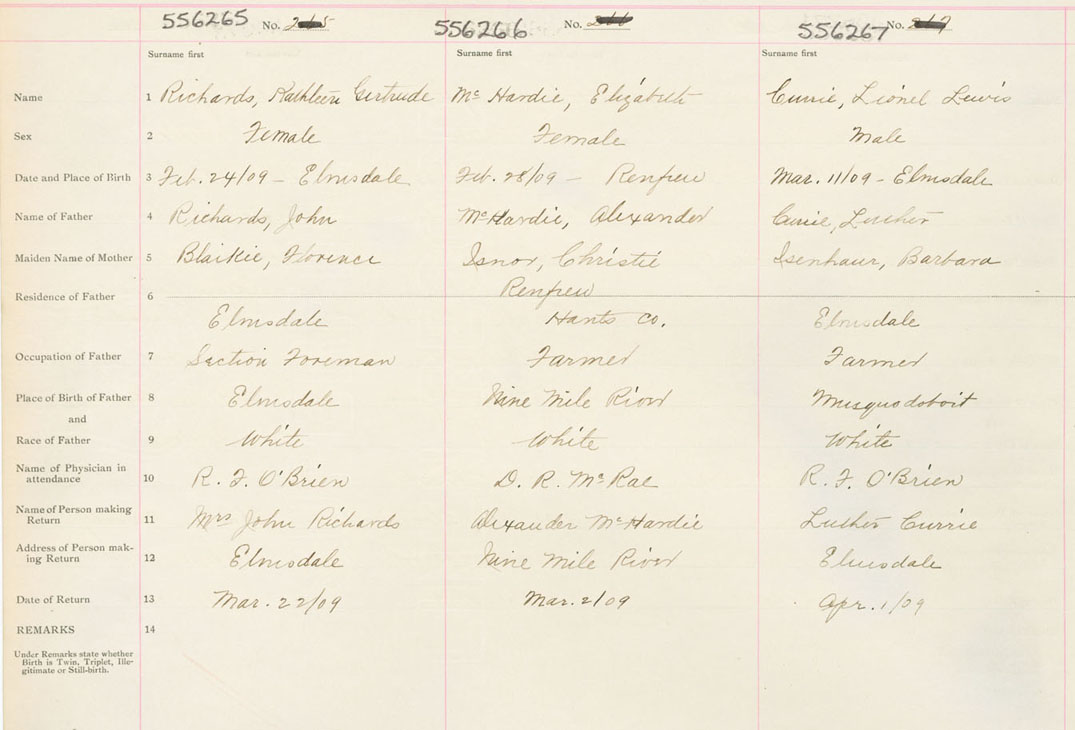 556265 No. 265 556266 No. 266 556267 No. 267
Surname first Surname first Surname first
Name 1 Richards, Kathleen Gertrude Mc Hardie, Elizabeth Currie, Lionel Lewis
Sex 2 Female Female Male
Date and Place of Birth 3 Feb. 24/09 - Elmsdale Feb. 28/09 - Renfrew Mar. 11/09 - Elmsdale
Name of Father 4 Richards, John McHardie, Alexander Currie, Luther
Maiden Name of Mother 5 Blaikie, Florence Isnor, Christie Isenhaur, Barbara
Residence of Father 6 Renfrew
Elmsdale Hants Co. Elmsdale
Occupation of Father 7 Section Foreman Farmer Farmer
Place of Birth of Father 8 Elmsdale Nine Mile River Musquodoboit
and
Race of Father 9 White White White
Name of Physician in
attendance 10 R. F. O'Brien D. R. McRae R. F. O'Brien
Name of Person making
Return 11 Mrs John Richards Alexander McHardie Luther Currie
Address of Person mak-
ing Return 12 Elmsdale Nine Mile River Elmsdale
Date of Return 13 Mar. 22/09 Mar. 2/09 Apr. 1/09
REMARKS 14
Under Remarks state whether
Birth is Twin, Triplet, Ille-
gitimate or Still-birth.